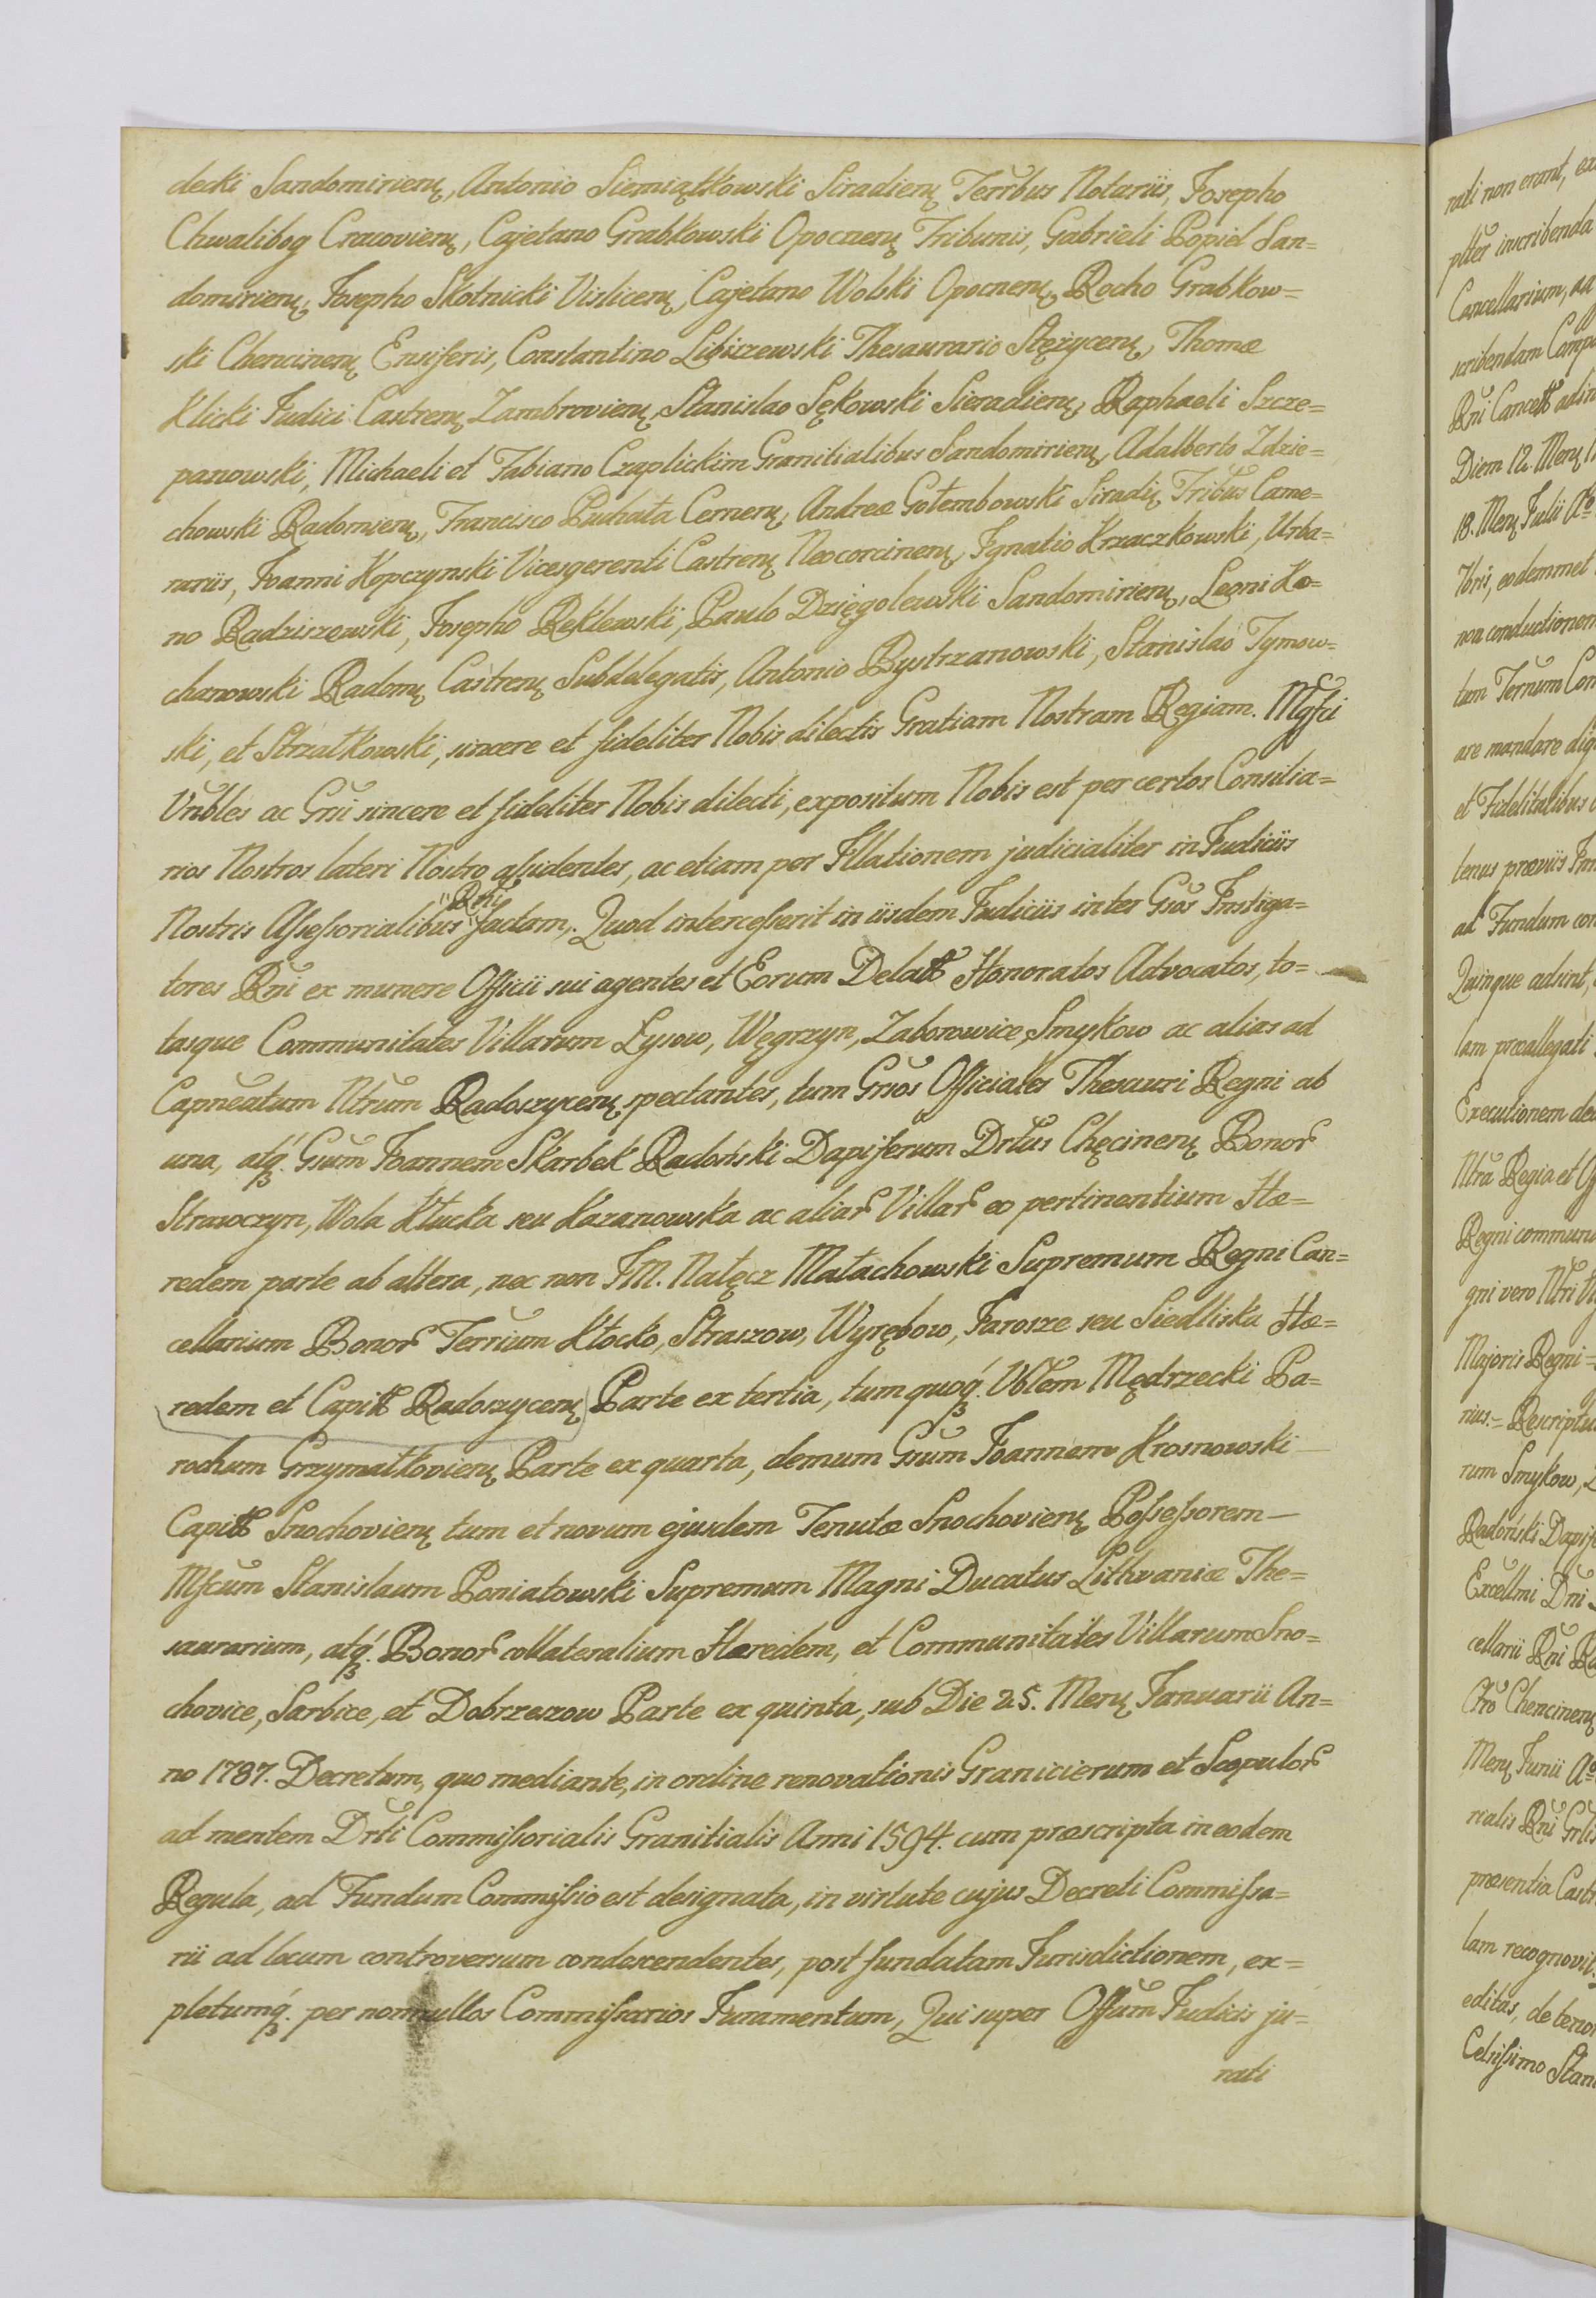 decki Sandomirienę, Antonio Siemiątkowski Siradienę Terribus Notariis, Josepho
Chwalibog Cracovienę, Cajetano Grabkowski Opocnenę Tribunis, Gabrieli Popiel San=
domirienę, Josepho Skotnicki Vislicenę, Cajetano Wolski Opocnenę, Rocho Grabkow=
ski Chencinenę Ensiferis, Constantino Libiszewski Thesaurario Stężycenę, Thomæ
Klicki Judici Castrenę Zambrovienę, Stanislao Sękowski Sieradienę, Raphaeli Szcze=
panowski, Michaeli et Fabiano Czaplickim Granitialibus Sandomirienę, Adalberto Zdzie=
chowski Radomienę, Francisco Puchała Cernenę, Andreæ Gołembowski Siradię Tribus Came=
rariis, Joanni Kopczynski Vicesgerenti Castrenę Neocorcinenę, Ignatio Krzaczkowski, Urba=
no Radziszewski, Josepho Ręklewski, Paulo Dzięgolewski Sandomirienę, Leoni Ko=
chanowski Radomę Castrenę Subdelegatis, Antonio Bystrzanowski, Stanislao Tymow=
ski, et Strzałkowski, sincere et fideliter Nobis dilectis Gratiam Nostram Regiam. Mgfci
Vnbles ac Grni sincere et fideliter Nobis dilecti, expositum Nobis est per certos Consilia=
rios Nostros lateri Nostro assidentes, ac etiam per Illationem judicialiter in Judiciis
Nostris Assessorialibus Rni factam. Quod intercesserit in iisdem Judiciis inter Gsos Instiga=
tores Rni ex munere Officii sui agentes et Eorum Delatt Honoratos Advocatos, to=
tasque Communitates Villarum Łysow, Węgrzyn, Zaborowice, Smykow ac alias ad
Capneatum Ntrum Radoszycenę spectantes, tum Grsos Officiales Thesauri Regni ab
una, atq. Gsum Joannem Skarbek Radoński Dapiferum Drtus Chęcinenę Bonor
Strawczyn, Wola Kłucka seu Kazanowska ac aliar Villar eo pertinentium Hæ=
redem parte ab altera, nec non IM. Nałęcz Małachowski Supremum Regni Can=
cellarium Bonor Terrium Kłocko, Straszow, Wyrębow, Jarosze seu Siedliska Hæ=
redem et Capitt Radoszycenę Parte ex tertia, tum quoq. Vblem Mędrzecki Pa=
rochum Grzymałkovienę Parte ex quarta, demum Gsum Joannem Krosnowski
Capitt Snochovienę tum et novum ejusdem Tenutæ Snochovienę Possessorem
Mfcum Stanislaum Poniatowski Supremum Magni Ducatus Lithvaniæ The=
saurarium, atq. Bonor collateralium Hæredem, et Communitates Villarum Sno=
chovice, Sarbice, et Dobrzeszow Parte ex quinta, sub Die 25. Menę Januarii An=
no 1787. Decretum, quo mediante, in ordine renovationis Granicierum et Scopulor
ad mentem Drti Commissorialis Granitialis Anni 1594. cum præscripta in eodem
Regula, ad Fundum Commissio est designata, in virtute cujus Decreti Commissa=
rii ad locum controversum condescendentes, post fundatam Jurisdictionem, ex=
pletumq. per nonnullos Commissarios Juramentum, Qui super Offum Judicis ju=
rati